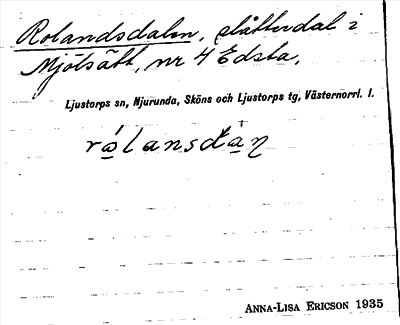 Rolandsdalen, slåtterdal i
Mjölsätt, nr 4 Edsta.
Ljustorps sn, Njurunda, Sköns och Ljustorps tg, Västernorrl. l.
ANNA-LISA ERICSON 1935